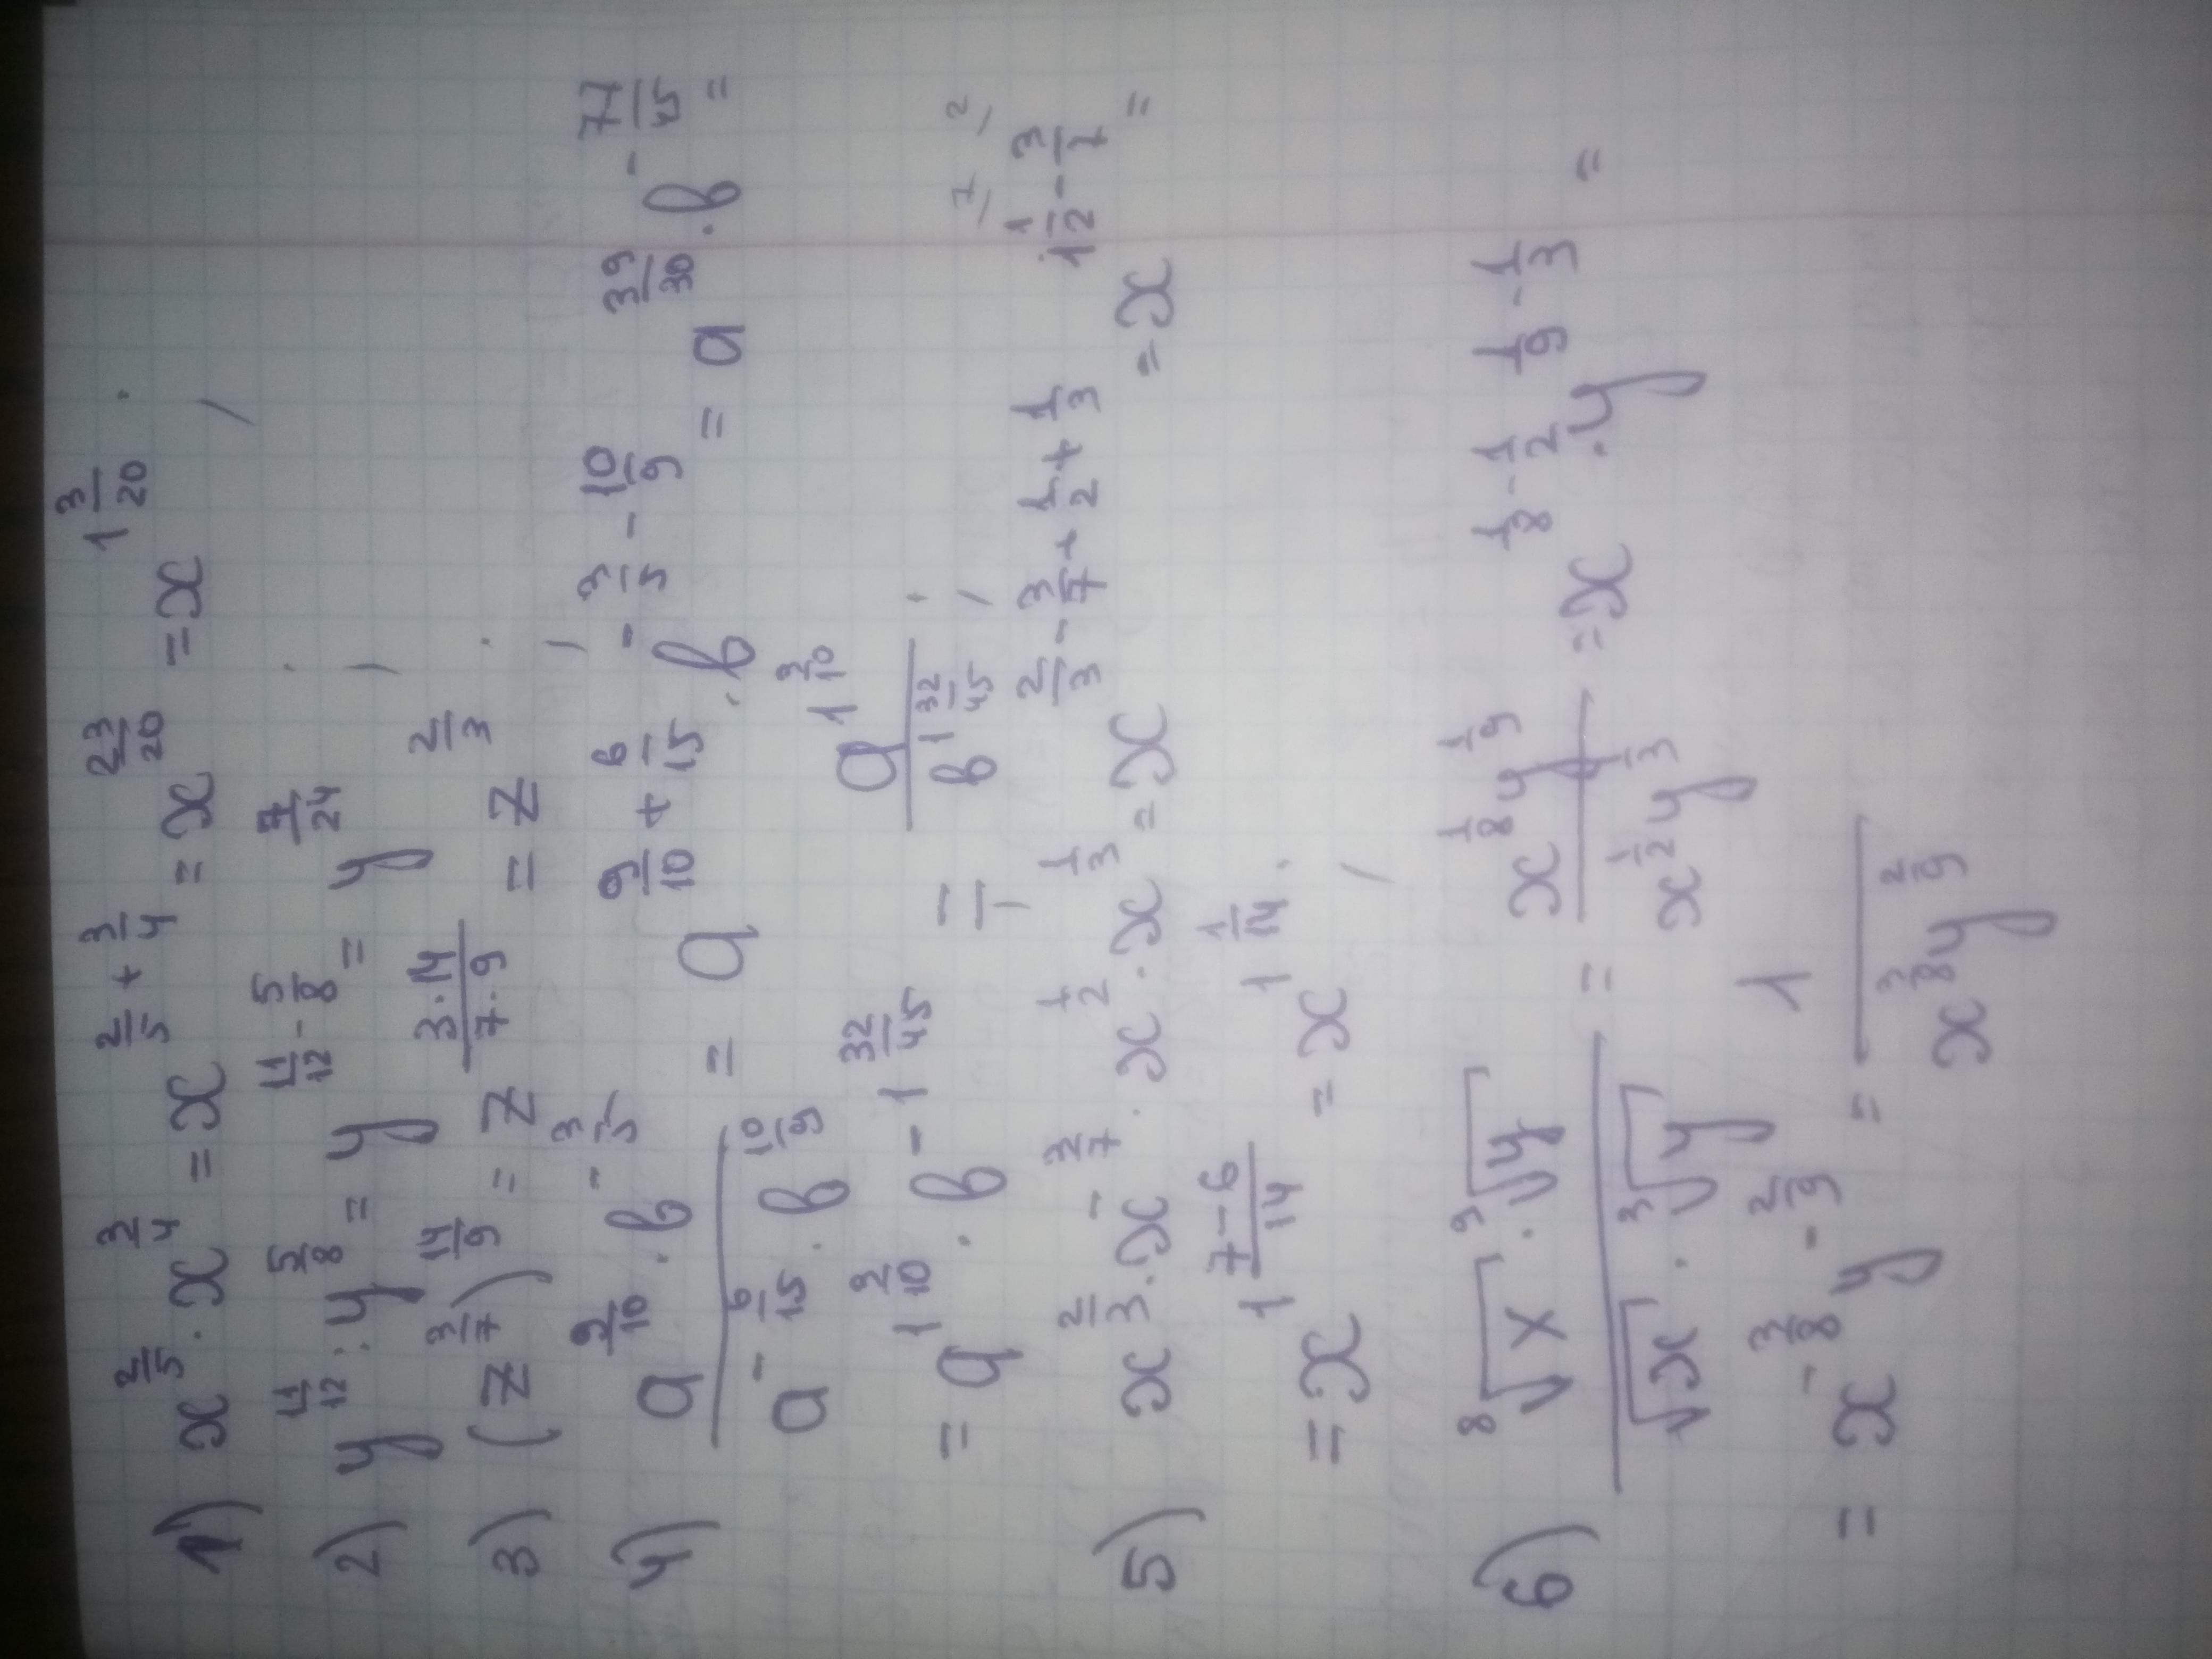 1) x^(2/5) · x^(3/4) = x^(2/5 + 3/4) = x^(23/20) = x^(1 3/20) ;
2) y^(11/12) : y^(5/8) = y^(11/12 - 5/8) = y^(7/24) ;
3) (z^(3/7))^(14/9) = z^((3·14)/(7·9)) = z^(2/3) ;
4) (a^(9/10) · b^(-3/5)) / (a^(-6/15) · b^(10/9)) = a^(9/10 + 6/15) · b^(-3/5 - 10/9) = a^(39/30) · b^(-77/45) =
= a^(1 3/10) · b^(-1 32/45) = a^(1 3/10) / b^(1 32/45) ;
5) x^(2/3) · x^(-3/7) · x^(1/2) · x^(1/3) = x^(2/3 - 3/7 + 1/2 + 1/3) = x^(1 1/2 - 3/7) =
= x^(1 (7-6)/14) = x^(1 1/14) ;
6) (⁸√x · ⁹√y) / (√x · ³√y) = (x^(1/8) y^(1/9)) / (x^(1/2) y^(1/3)) = x^(1/8 - 1/2) · y^(1/9 - 1/3) =
= x^(-3/8) y^(-2/9) = 1 / (x^(3/8) y^(2/9))